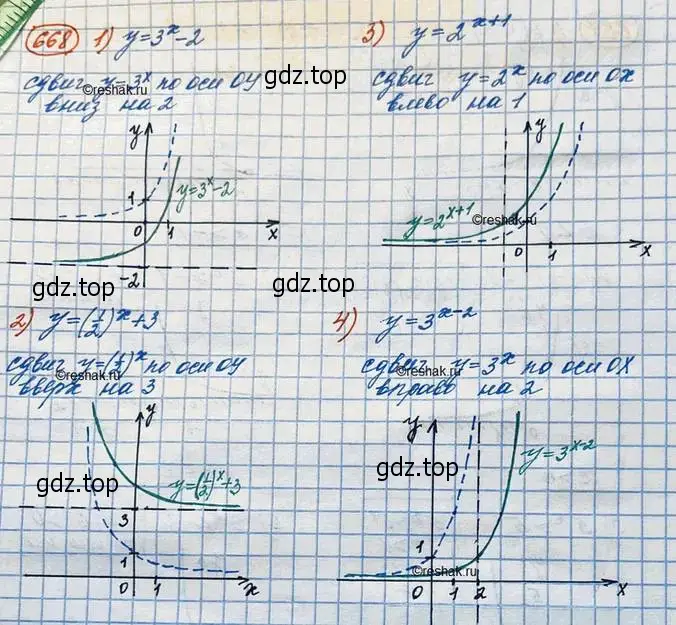 668 1) y=3^x-2
сдвиг y=3^x по оси OY
вниз на 2
©reshak.ru
gdz.top
y
1
y=3^x-2
0 1 x
-2
gdz.top
3) y=2^{x+1}
сдвиг y=2^x по оси OX
влево на 1
gdz.top
y
y=2^{x+1}
©reshak.ru
0 1 x
gdz.top
2) y=(1/2)^x+3
сдвиг y=(1/2)^x по оси OY
вверх на 3
©reshak.ru
y
gdz.top
y=(1/2)^x+3
3
1
0 1 x
4) y=3^{x-2}
сдвиг y=3^x по оси OX
вправо на 2
©reshak.ru
y
gdz.top
y=3^{x-2}
1
©reshak.ru
0 1 2 x